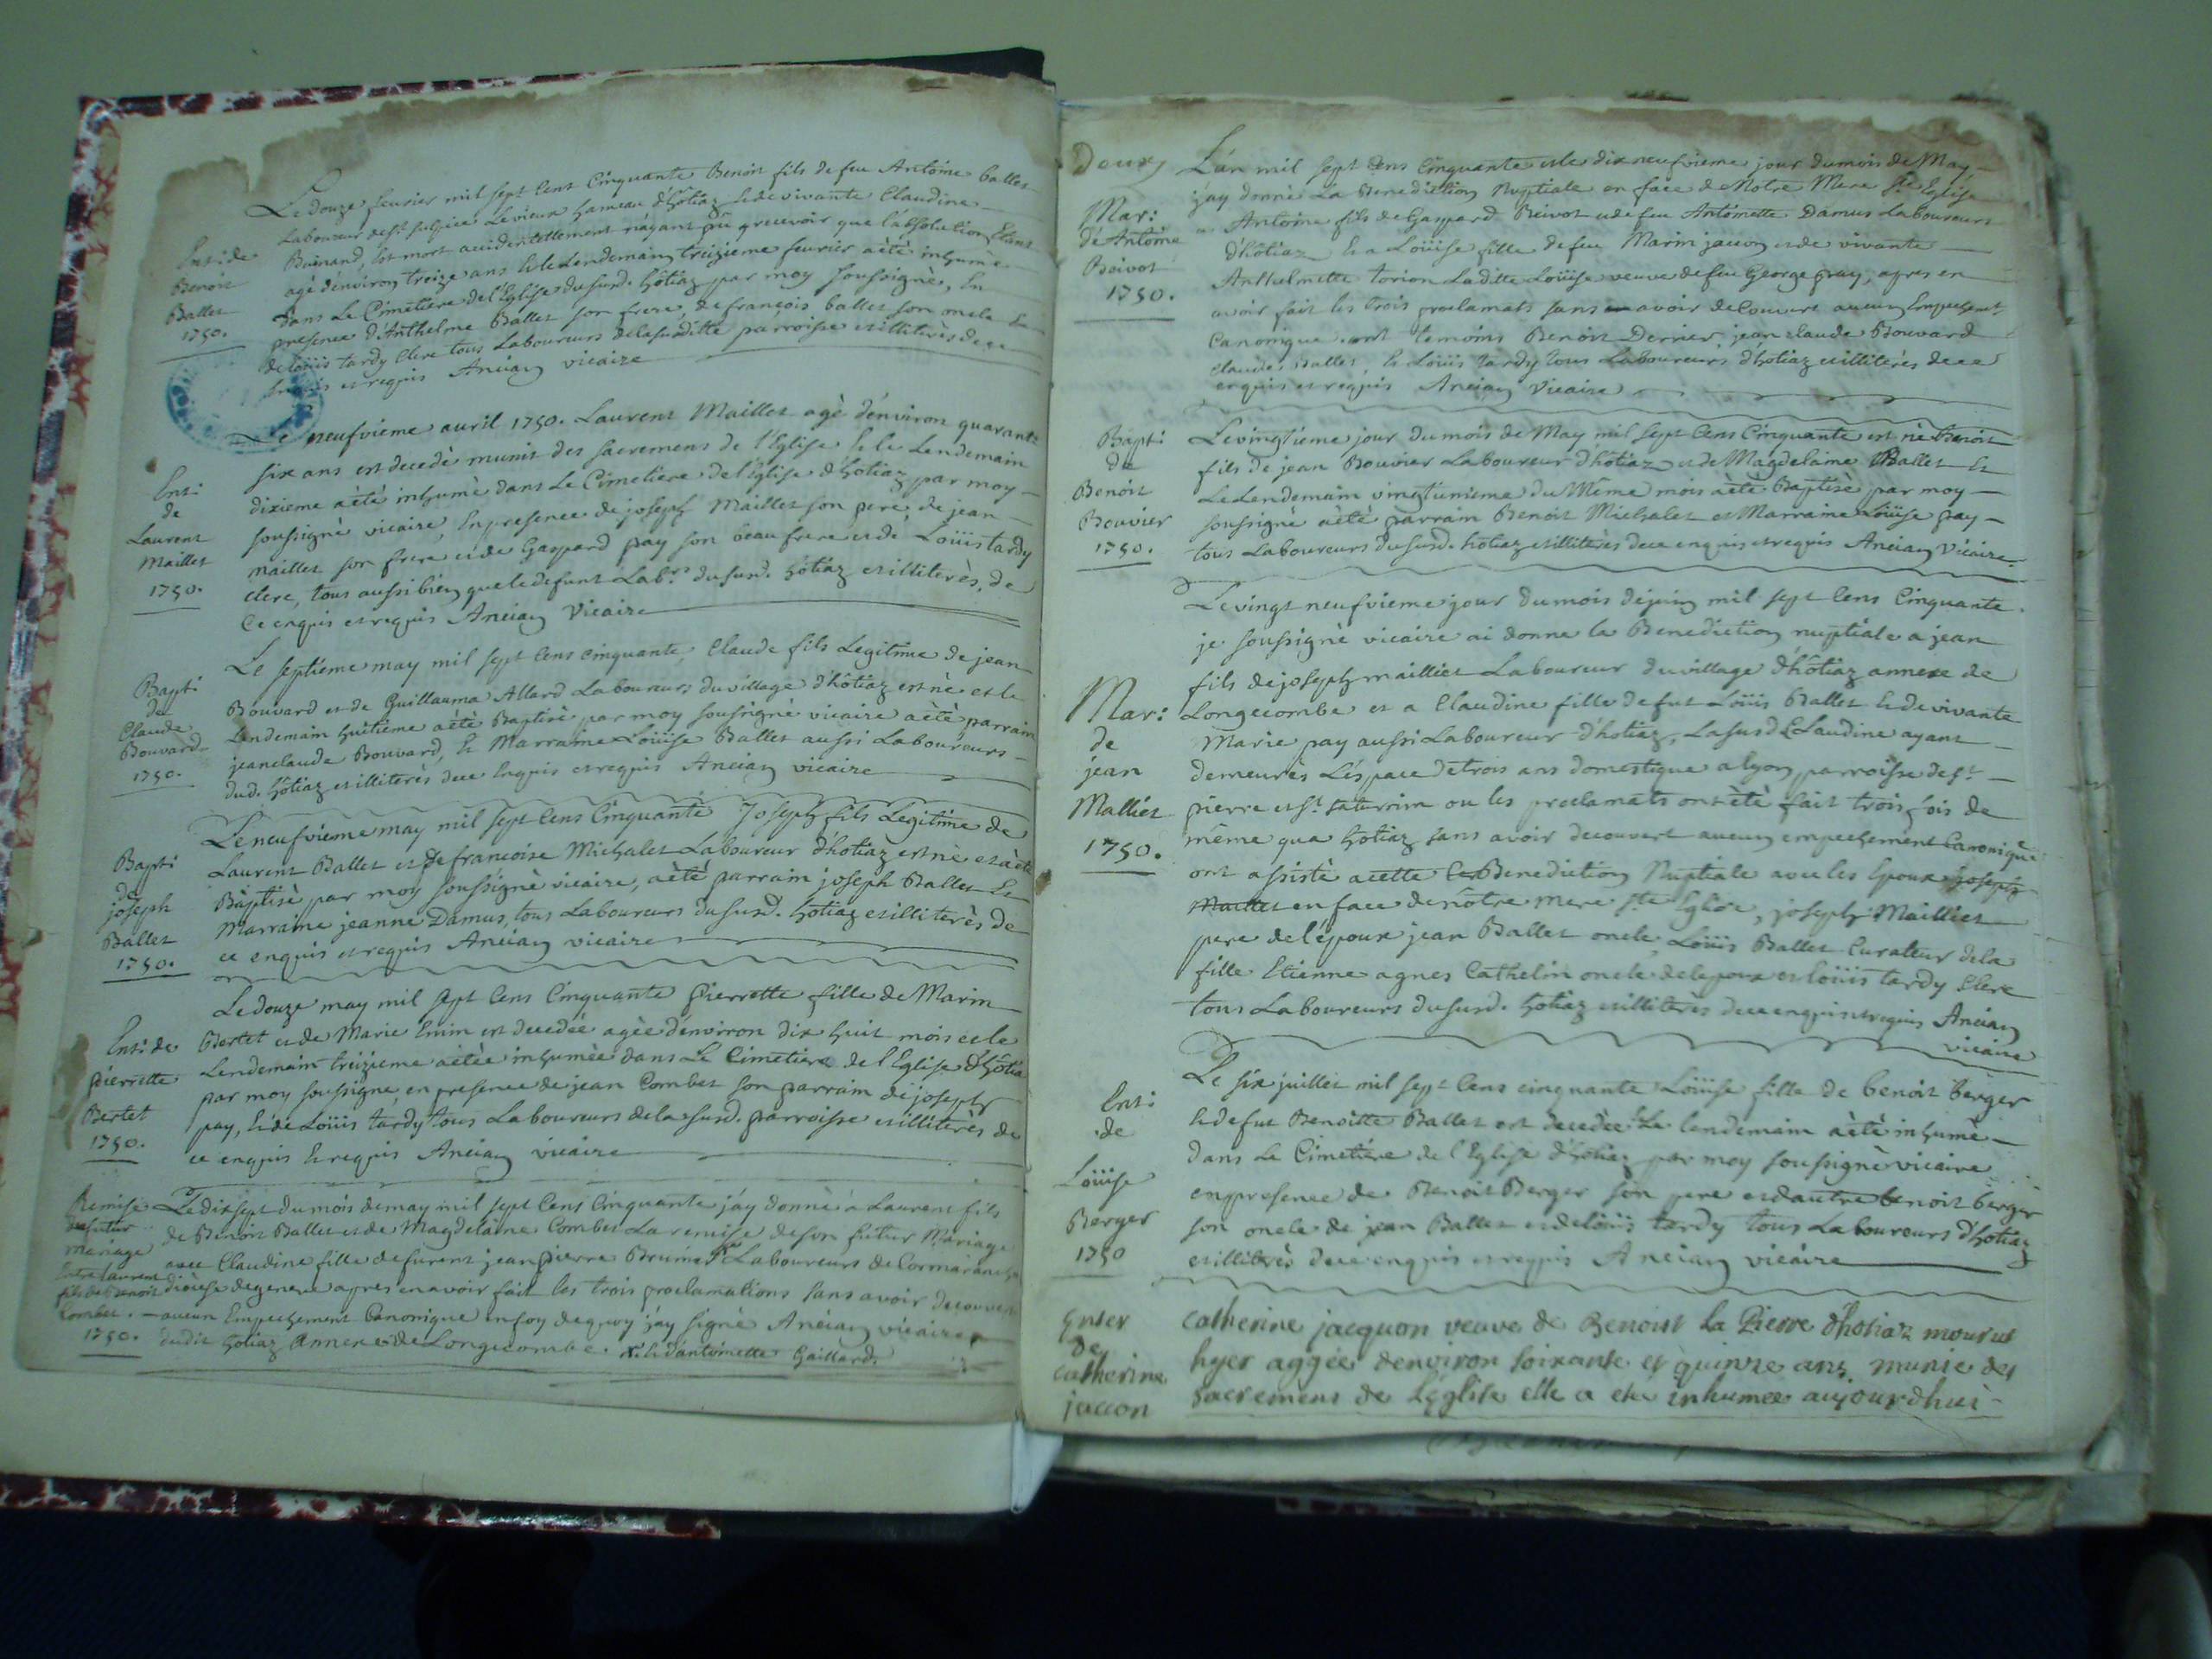 Le douze feurier mil sept Cent Cinquante Benoit fils de feu Antoine ballet
Laboureur de st sulpice Le vieux hameau d'hôtiaz & de vivante Claudine
Ent: de
Benoit
Ballet
1750.
Buinand, est mort accidentellement n'ayant pû recevoir que l'absolution Etant
agé d'environ treize ans & le Lendemain treizieme feurier a èté inhumè
dans Le Cimetiere de l'Eglise du susd. hôtiaz par moy soussignè, En
presence d'Anthelme Ballet son frere, de françois ballet son oncle &
de Loüis tardy Clerc tous Laboureurs de la susditte parroisse et illiterès de ce
enquis et requis Ancian vicaire
Le neufvieme auril 1750. Laurent Maillet agè d'environ quarante
Ent:
de
Laurent
Maillet
1750.
six ans est decedè munit des sacremens de l'Eglise & le Lendemain
dixieme a èté inhumè dans Le Cimetiere de l'Eglise d'hôtiaz par moy
soussignè vicaire, En presence de joseph Maillet son pere, de jean
maillet son frere et de Gaspard pay son beau frere et de Loüis tardy
clerc, tous aussi bien que le defunt Labrs. du susd. hôtiaz et illiterès, de
Ce enquis et requis Ancian Vicaire
Le septieme may mil sept Cens cinquante, Claude fils Legitime de jean
Bapt:
de
Claude
Bouvard
1750.
Bouvard et de Guillauma Allard Laboureurs du village d'hôtiaz est nè et le
Lendemain huitième a èté Baptisè par moy soussignè vicaire a èté parrain
jeanclaude Bouvard, & Marraine Loüise Ballet aussi Laboureurs
dud. hôtiaz et illiterès de ce Enquis et requis Ancian vicaire
Le neufvieme may mil sept Cens Cinquante Joseph fils Legitime de
Bapt:
de
joseph
Ballet
1750.
Laurent Ballet et de francoise Michalet Laboureur d'hotiaz est nè et a èté
Baptisè par moy soussignè vicaire, a èté parrain joseph Ballet Et
Marraine jeanne Damus, tous Laboureurs du susd. hôtiaz et illiterès de
ce enquis et requis Ancian vicaire
Le douze may mil sept Cens Cinquante pierrette fille de Marin
Ent: de
pierrette
Bertet
1750.
Bertet et de Marie Emin est decedée agèe d'environ dix huit mois et le
Lendemain treizieme a ètèe inhumèe dans Le Cimetiere de l'Eglise d'hôtia
par moy soussigne, en presence de jean Combet son parrain de joseph
pay, & de Loüis tardy tous Laboureurs de la susd. parroisse et illiterès de
ce enquis & requis Ancian vicaire
Remise
du futur
mariage
Entre Laurent
fils de Benoit
Combet.
1750.
Le dixsept du mois de may mil sept Cens Cinquante j'ay donnè a Laurent fils
de Benoit Ballet et de Magdelaine Combet La remise de son futur Mariage
avec Claudine fille de furent jean pierre Brunet Laboureurs de Cormaranche
diocese de geneve apres en avoir fait les trois proclamations sans avoir decouvert
aucun Empechement Canonique En foy de quoy j'ay signè Ancian vicaire
dudit hotiaz Annexe de Longecombe. x. & d'antoinette Gaillard.
Deux
L'an mil sept Cens Cinquante et le dix neufvieme jour du mois de May
j'ay donnè La Benediction Nuptiale en face de Notre Mere Ste Eglise
Mar:
de Antoine
Beivot
1750.
a Antoine fils de Gaspard Beivot et de feu Antoinette Damus Laboureurs
d'hôtiaz & a Loüise fille de feu Marin jacon et de vivante
Anthelmette torion Laditte Loüise veuve de feu George pay, apres en
avoir fait les trois proclamats sans avoir decouvert aucun Empechement
Canonique ont temoins Benoit Derrier, jean claude Bouvard
claude Ballet, & Loüis tardy tous Laboureurs d'hotiaz et illiterès de ce
enquis et requis Ancian Vicaire
Bapt:
de
Benoit
Bouvier
1750.
Le vingtieme jour du mois de May mil sept Cens Cinquante est nè Benoit
fils de jean Bouvier Laboureur d'hôtiaz et de Magdelaine Ballet Et
Le Lendemain vingtunieme du Même mois a èté Baptisè par moy
soussignè a èté parrain Benoit Michalet et Marraine Loüise pay
tous Laboureurs du susd. hotiaz et illiterès de ce enquis et requis Ancian Vicaire
Le vingt neufvieme jour du mois de juin mil sept Cens Cinquante
je soussignè vicaire ai donne la Benediction nuptiale a jean
Mar:
de
jean
Malliet
1750.
fils de joseph mailliet Laboureur du village d'hôtiaz annexe de
Longecombe et a Claudine fille de fut Loüis Ballet & de vivante
Marie pay aussi Laboureur d'hotiaz, La susd Claudine ayant
demeurès L'éspace de trois ans domestique a lyon parroisse de st
pierre et st saturnin ou les proclamats ont èté fait trois fois de
même qua hotiaz sans avoir decouvert aucun empechement Canonique
ont assistè a cette Benediction Nuptiale avec les Epoux joseph
Maillet en face de nôtre mere ste Eglise, joseph Mailliet
pere de l'époux jean Ballet oncle, Loüis Ballet Curateur de la
fille Etienne agnes Cathelin oncle de l'epoux et loüis tardy Clerc
tous Laboureurs du susd. hotiaz et illiterès de ce enquis et requis Ancian
vicaire
Le six juillet mil sept Cens cinquante Loüise fille de benoit Berger
Ent:
de
Loüise
Berger
1750
& de fut Benoitte Ballet est decedèe & Le lendemain a èté inhumè
dans Le Cimetiere de l'Eglise d'hotiaz par moy soussignè vicaire
en presence de Benoit Berger son pere et dautre benoit berger
son oncle de jean Ballet et de loüis tardy tous Laboureurs d'hotiaz
et illiterès de ce enquis et requis Ancian vicaire
Enter
De
catherine
jaccon
catherine jacquon veuve de Benoist La Pierre d'hotiaz mourut
hyer aggée denviron soixante et quinze ans munie des
sacremens de Leglise elle a ete inhumee aujourdhui